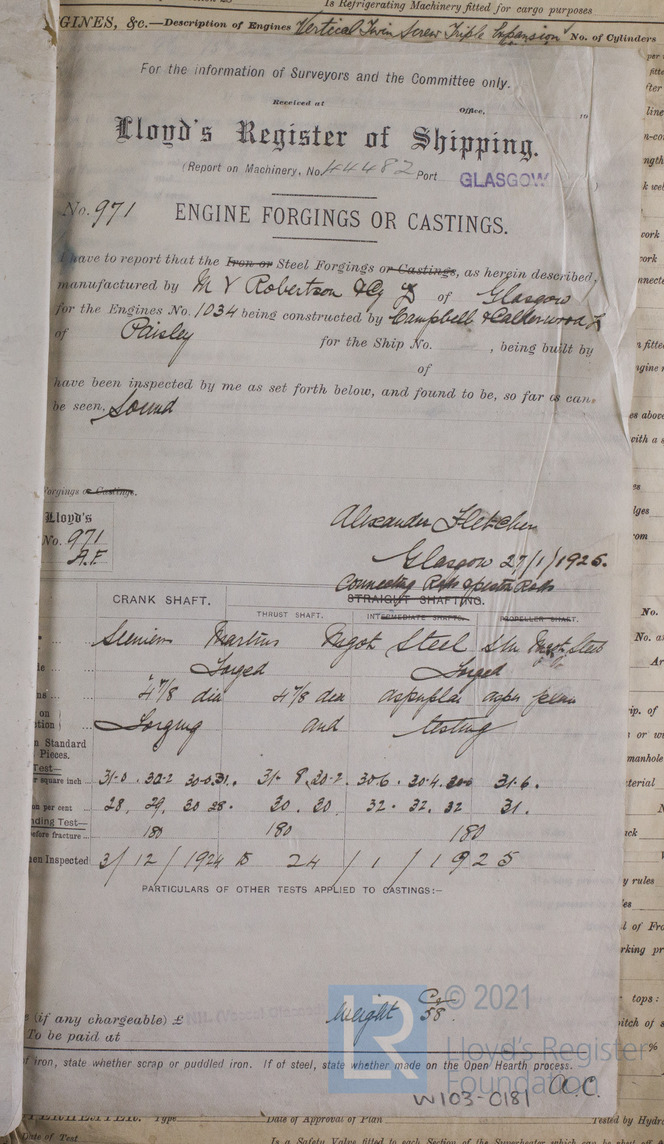 Is Refrigerating Machinery fitted for cargo purposes
GINES, &c.—Description of Engines Vertical Twin Screw Triple Expansion No. of Cylinders
For the information of Surveyors and the Committee only.
Received at Office, 19
Lloyd's Register of Shipping.
(Report on Machinery, No. 44482 Port GLASGOW )
No. 971 ENGINE FORGINGS OR CASTINGS.
I have to report that the Iron or Steel Forgings or Castings, as herein described,
manufactured by M Robertson & Co of Glasgow
for the Engines No. 1034 being constructed by Campbell & Calderwood
of Paisley for the Ship No. , being built by
of
have been inspected by me as set forth below, and found to be, so far as can
be seen, Sound
Forgings or Castings.
Alexander Fletcher
Lloyd's
No. 971
A.F.
Glasgow 27/1/1925.
Connecting Rods & Piston Rods
STRAIGHT SHAFTING.
CRANK SHAFT. THRUST SHAFT. INTERMEDIATE SHAFTS. PROPELLER SHAFT.
Siemens Martins Ingot Steel Steel
Forged Forged
4 7/8 dia 4 7/8 dia as per plan as per plan
Forging and testing
n Standard
Pieces.
Test—
r square inch 31.0 . 32.2 31. 8 30.2. 30.6 . 30.4. 31.6.
on per cent 28, 29, 30 28. 30. 30. 32. 32. 32 31.
nding Test—
before fracture 180 180 180
hen Inspected 3/12/1924 to 24/1/1925
PARTICULARS OF OTHER TESTS APPLIED TO CASTINGS:—
Weight 58.
(if any chargeable) £
To be paid at
f iron, state whether scrap or puddled iron. If of steel, state whether made on the Open Hearth process.
© 2021
LR
Lloyd's Register
Foundation
W103-0181
Type Date of Approval of Plan Tested by Hydr
Date of Test Is a Safety Valve fitted to each Section of the Superheater